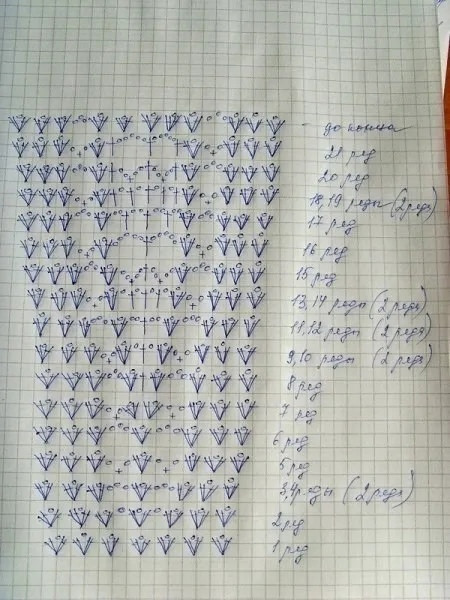 до конца
21 ряд
20 ряд
18,19 ряды (2 ряда)
17 ряд
16 ряд
15 ряд
13,14 ряды (2 ряда)
11,12 ряды (2 ряда)
9,10 ряды (2 ряда)
8 ряд
7 ряд
6 ряд
5 ряд
3,4 ряды (2 ряда)
2 ряд
1 ряд